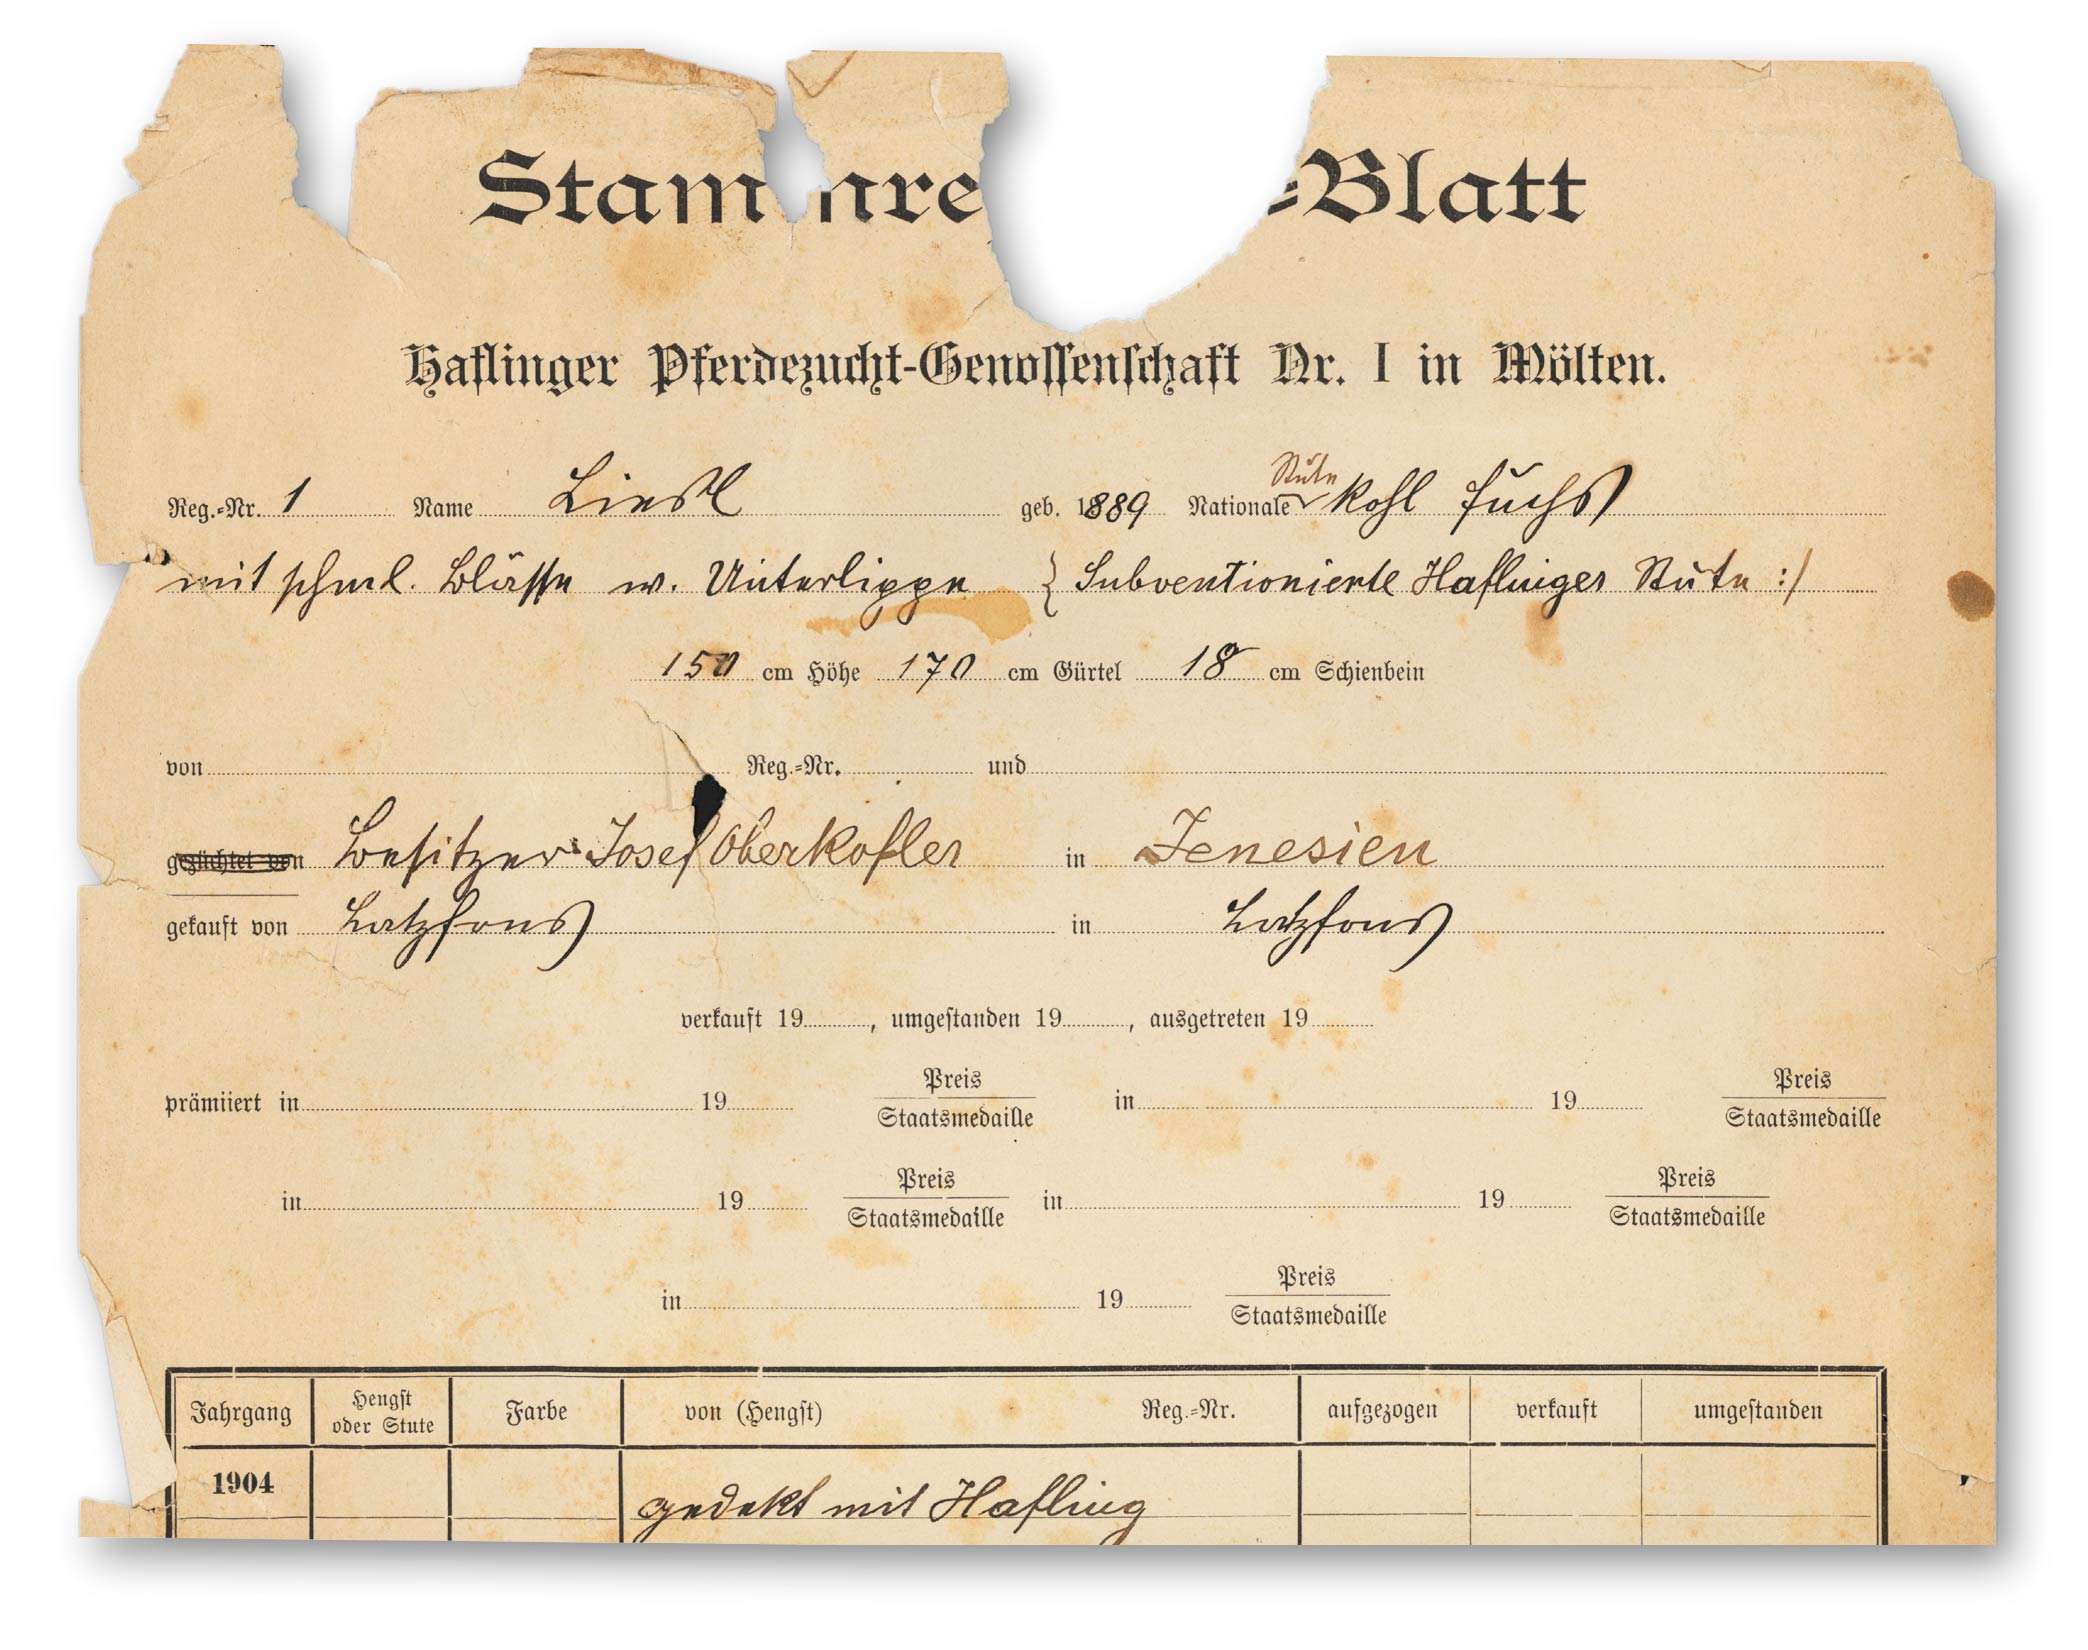 Stammre -Blatt
Haflinger Pferdezucht-Genossenschaft Nr. I in Mölten.
Stute
Reg.-Nr. 1 Name Liesl geb. 1889 Nationale Kohl fuchs
mit schml. Blässe w. Unterlippe { Subventionierte Haflinger Stute :/
150 cm Höhe 170 cm Gürtel 18 cm Schienbein
von Reg.-Nr. und
gezüchtet von Besitzer Josef Oberkofler in Jenesien
gekauft von Latzfons in Latzfons
verkauft 19 , umgestanden 19 , ausgetreten 19
prämiiert in 19 Preis Staatsmedaille in 19 Preis Staatsmedaille
in 19 Preis Staatsmedaille in 19 Preis Staatsmedaille
in 19 Preis Staatsmedaille
Jahrgang Hengst oder Stute Farbe von (Hengst) Reg.-Nr. aufgezogen verkauft umgestanden
1904 gedekt mit Hafling